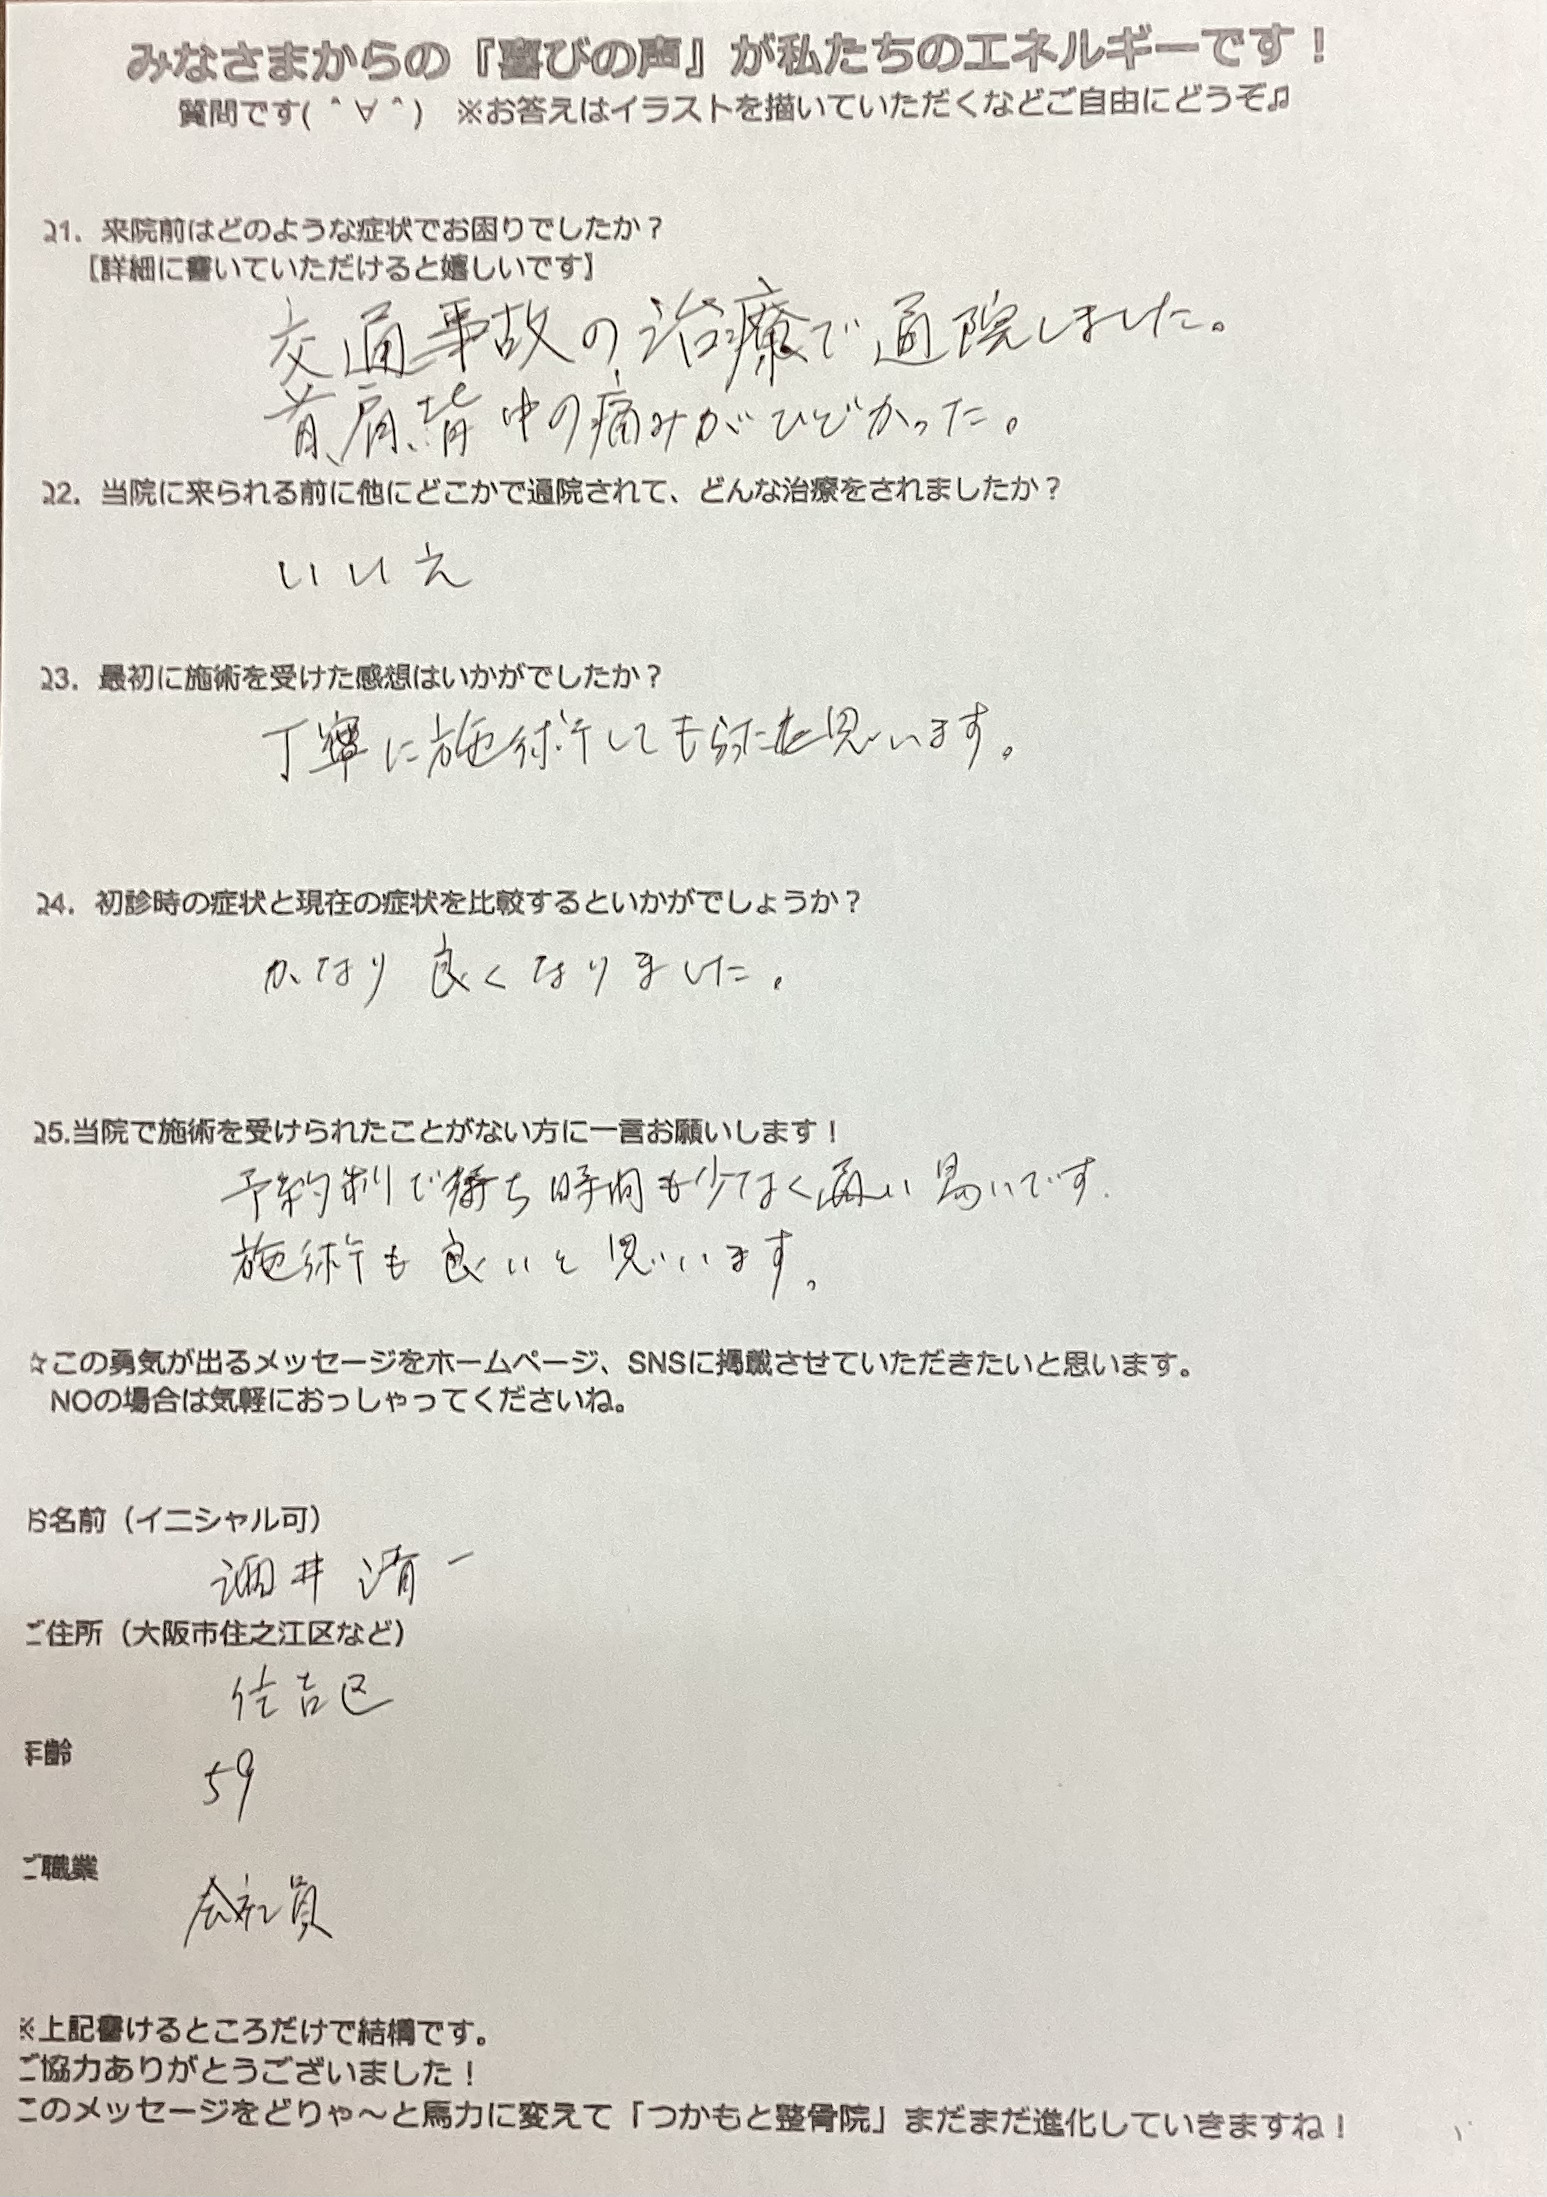 みなさまからの『喜びの声』が私たちのエネルギーです！
質問です( ＾∀＾)　※お答えはイラストを描いていただくなどご自由にどうぞ♫
Q1．来院前はどのような症状でお困りでしたか？
【詳細に書いていただけると嬉しいです】
交通事故の治療で通院しました。
首、肩、背中の痛みがひどかった。
Q2．当院に来られる前に他にどこかで通院されて、どんな治療をされましたか？
いいえ
Q3．最初に施術を受けた感想はいかがでしたか？
丁寧に施術してもらったと思います。
Q4．初診時の症状と現在の症状を比較するといかがでしょうか？
かなり良くなりました。
Q5.当院で施術を受けられたことがない方に一言お願いします！
予約制で待ち時間も少なく通い易いです.
施術も良いと思います。
☆この勇気が出るメッセージをホームページ、SNSに掲載させていただきたいと思います。
NOの場合は気軽におっしゃってくださいね。
お名前（イニシャル可）
酒井 清一
ご住所（大阪市住之江区など）
住吉区
年齢
59
ご職業
会社員
※上記書けるところだけで結構です。
ご協力ありがとうございました！
このメッセージをどりゃ～と馬力に変えて「つかもと整骨院」まだまだ進化していきますね！